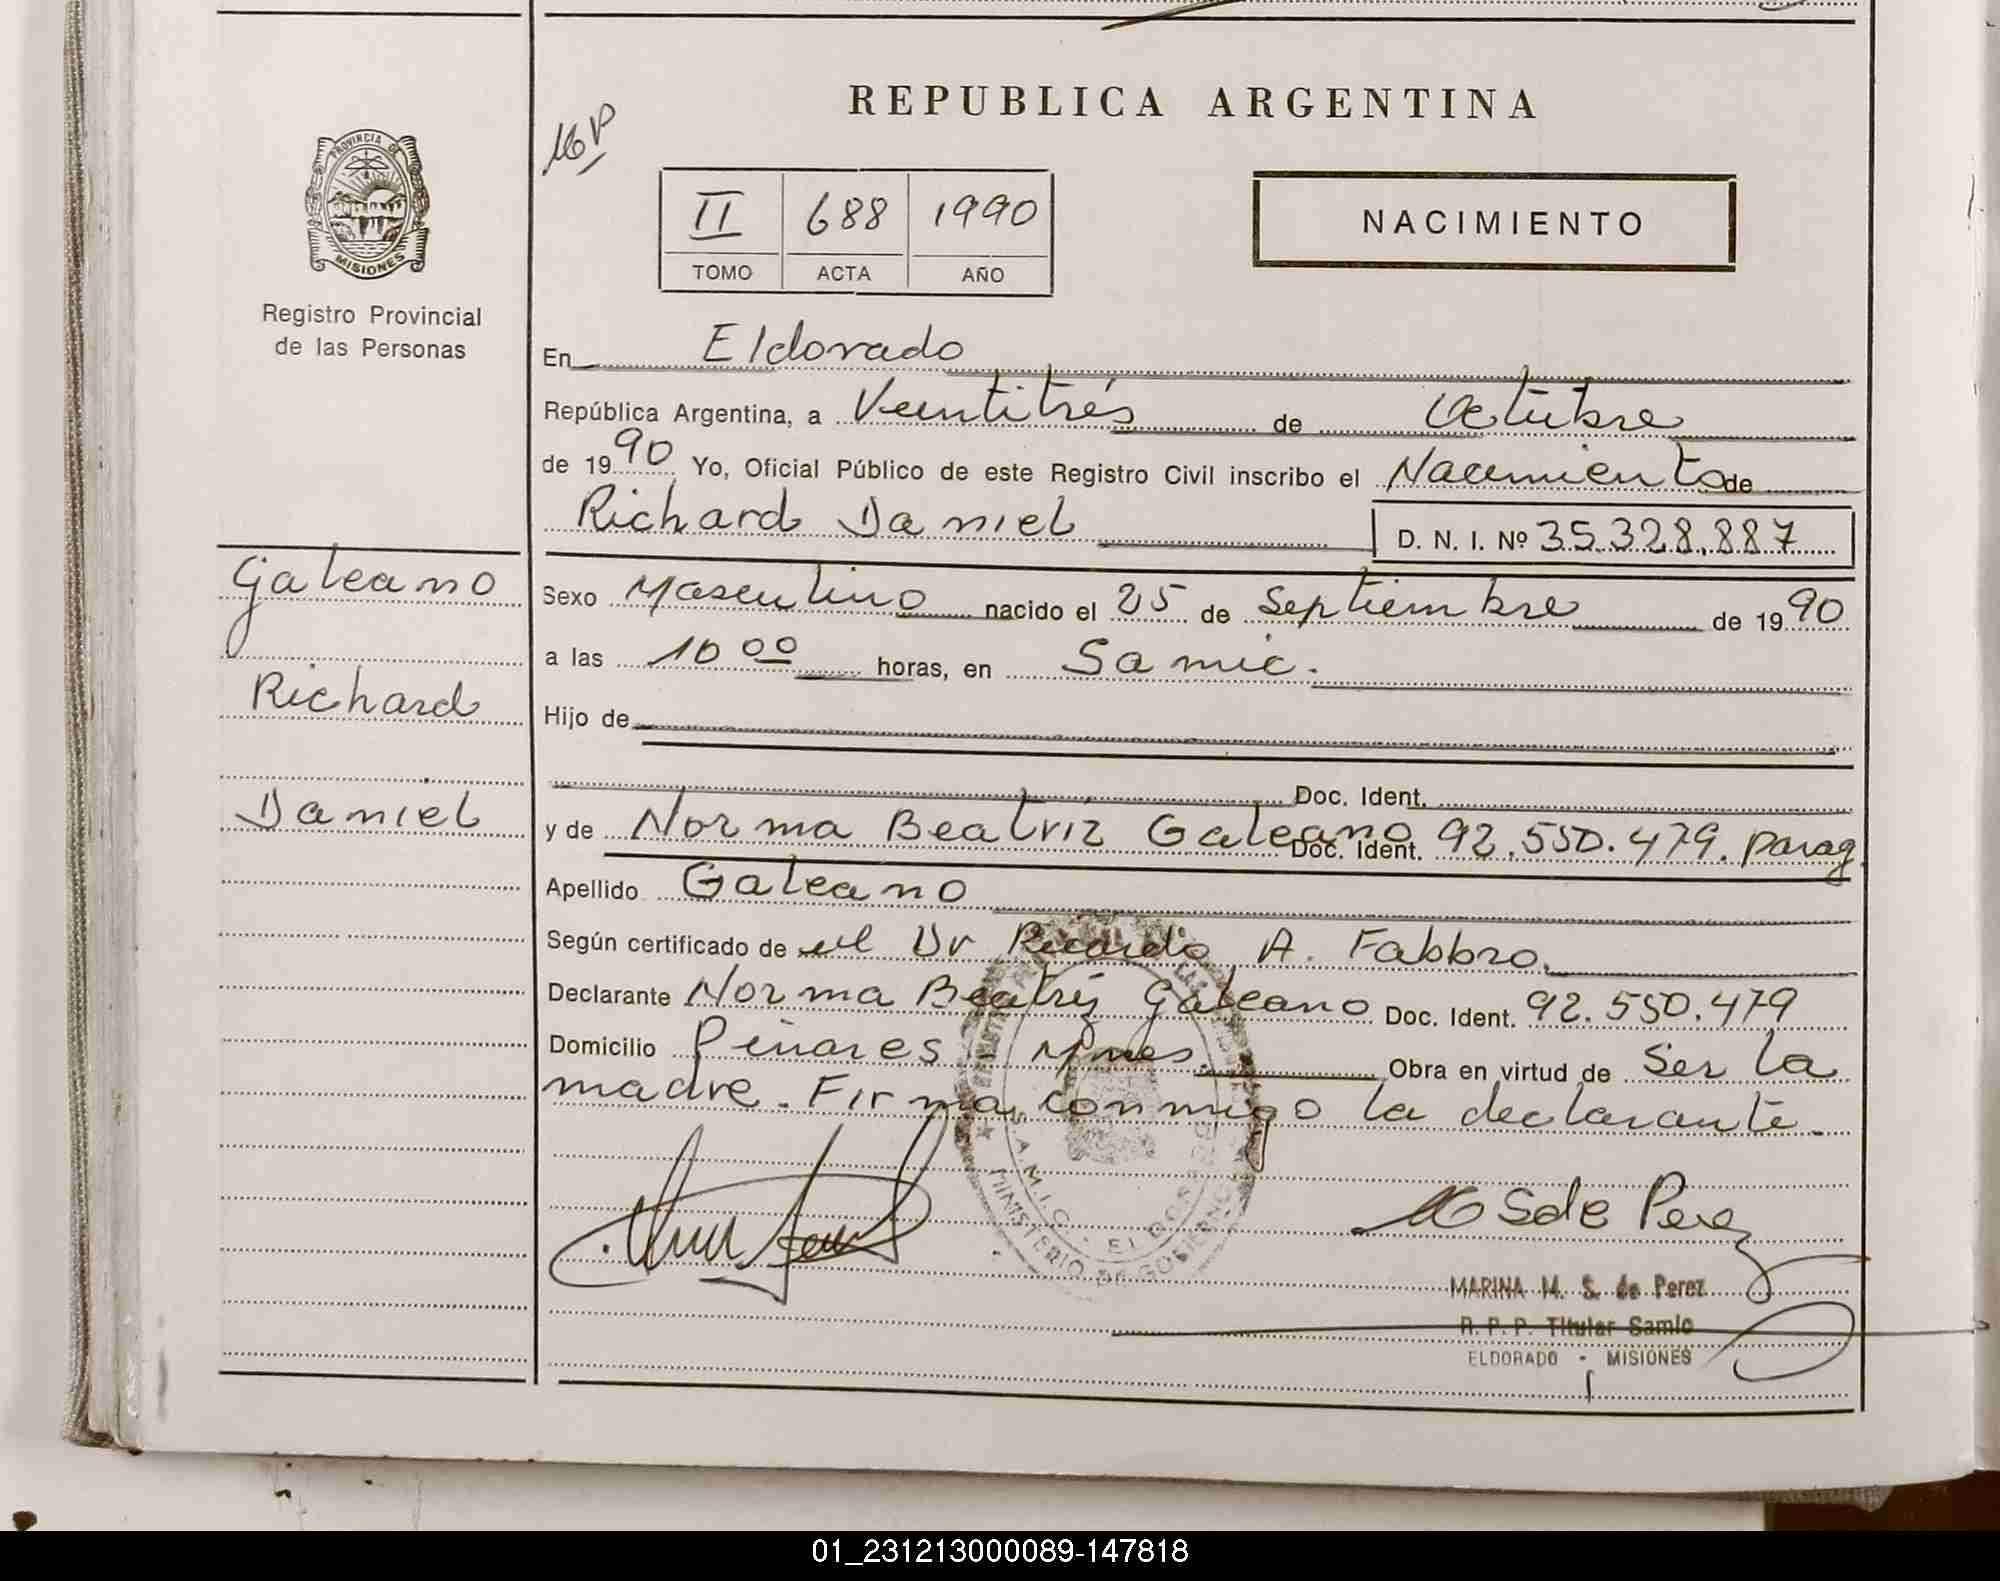 REPUBLICA ARGENTINA
PROVINCIA DE
MISIONES
Registro Provincial
de las Personas
II 688 1990
TOMO ACTA AÑO
NACIMIENTO
En Eldorado
República Argentina, a Veintitrés de Octubre
de 1990 Yo, Oficial Público de este Registro Civil inscribo el Nacimiento de
Richard Daniel D. N. I. Nº 35.328.887
Galeano
Richard
Daniel
Sexo Masculino nacido el 25 de Septiembre de 1990
a las 10 00 horas, en Samic.
Hijo de
Doc. Ident.
y de Norma Beatriz Galeano Doc. Ident. 92.550.479. parag.
Apellido Galeano
Según certificado de el Dr Ricardo A. Fabbro.
Declarante Norma Beatriz Galeano Doc. Ident. 92.550.479
Domicilio Piñares Mnes. Obra en virtud de Ser la
madre. Firma conmigo la declarante.
S.A.M.I.C. - ELDORADO
MINISTERIO DE GOBIERNO
S de Perez
MARINA M. S. de Perez
R. P. P. Titular Samic
ELDORADO - MISIONES
01_231213000089-147818